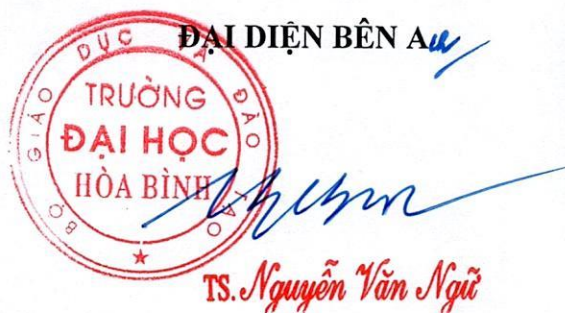 ĐẠI DIỆN BÊN A
BỘ GIÁO DỤC VÀ ĐÀO TẠO
TRƯỜNG
ĐẠI HỌC
HÒA BÌNH
TS. Nguyễn Văn Ngữ